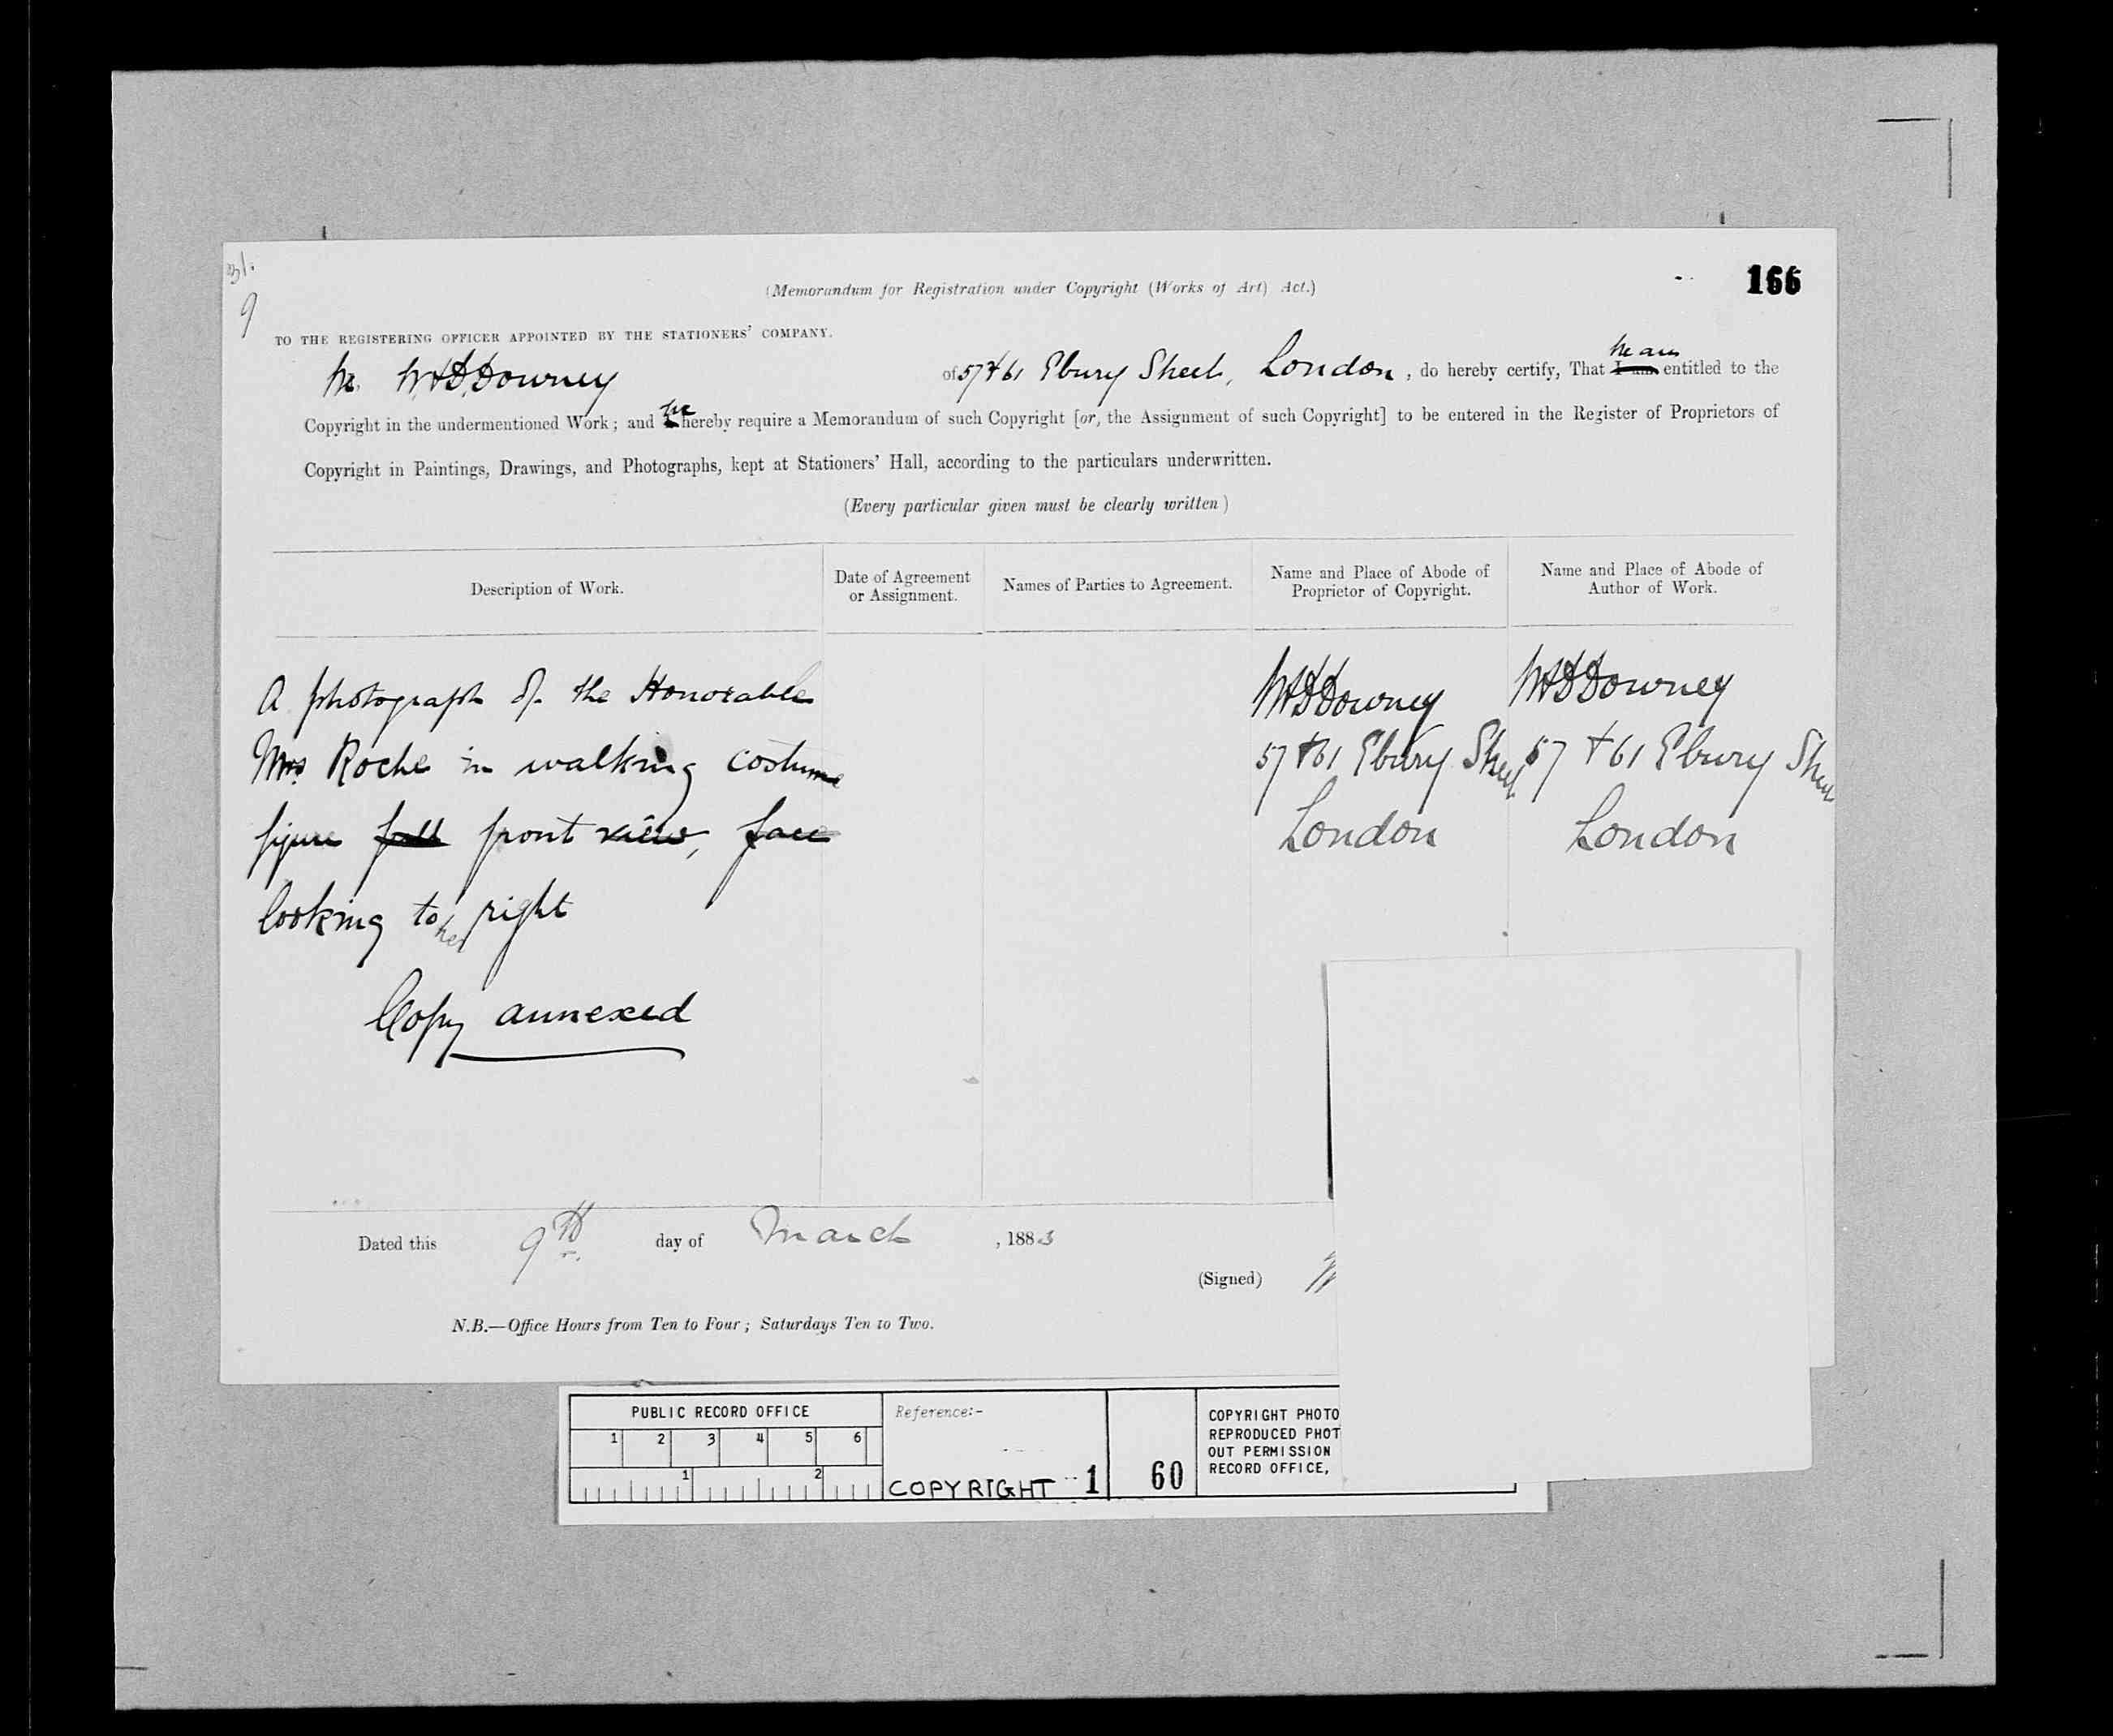 31.
9
(Memorandum for Registration under Copyright (Works of Art) Act.)
166
TO THE REGISTERING OFFICER APPOINTED BY THE STATIONERS' COMPANY.
We W & D Downey of 57 & 61 Ebury Street, London, do hereby certify, That I am we are entitled to the
Copyright in the undermentioned Work; and I we hereby require a Memorandum of such Copyright [or, the Assignment of such Copyright] to be entered in the Register of Proprietors of
Copyright in Paintings, Drawings, and Photographs, kept at Stationers' Hall, according to the particulars underwritten.
(Every particular given must be clearly written)
Description of Work.
Date of Agreement
or Assignment.
Names of Parties to Agreement.
Name and Place of Abode of
Proprietor of Copyright.
Name and Place of Abode of
Author of Work.
A photograph of the Honorable
Mrs Roche in walking costume
figure full front view, face
looking to her right
Copy annexed
W & D Downey
57 & 61 Ebury Street
London
W & D Downey
57 & 61 Ebury Street
London
Dated this 9th day of March, 1883
(Signed) W
N.B.—Office Hours from Ten to Four; Saturdays Ten to Two.
PUBLIC RECORD OFFICE
1 2 3 4 5 6
1 2
Reference:-
COPYRIGHT 1
60
COPYRIGHT PHOTO
REPRODUCED PHOT
OUT PERMISSION
RECORD OFFICE,